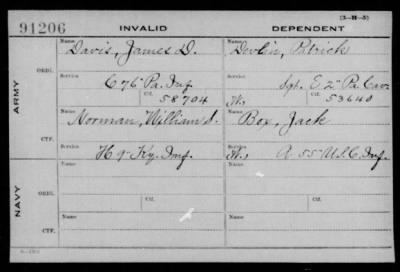 (3-H-5)
91206 INVALID DEPENDENT
Name Davis, James D. Name Devlin, Patrick
ORIG.
Service C 76" Pa. Inf. Service Sgt. E. 2" Pa. Cav.
Ctf. 58704 W. Ctf. 53640
ARMY
Name Norman, William S. Name Box, Jack
CTF.
Service H 9" Ky. Inf. Service W. A 55" U.S.C. Inf.
Name Name
ORIG.
Service Ctf. Service Ctf.
NAVY
Name Name
CTF.
Service Service